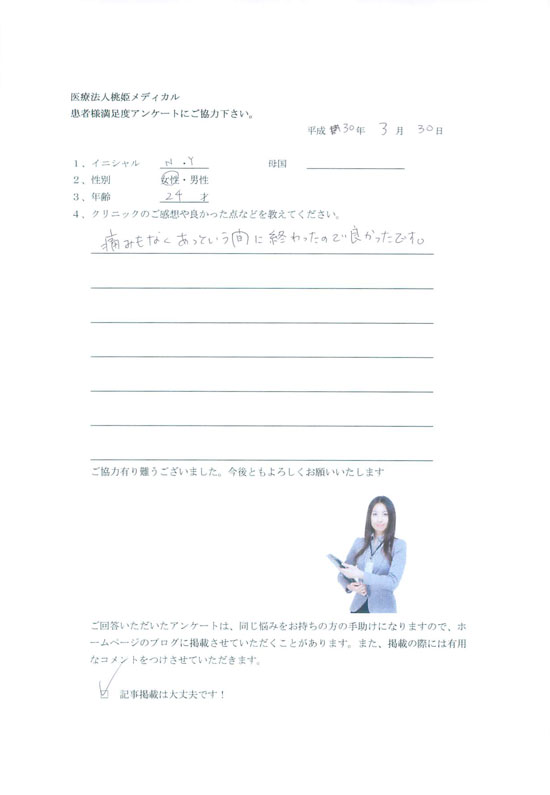 医療法人桃姫メディカル
患者様満足度アンケートにご協力下さい。
平成 30年 3月 30日
1、イニシャル N・Y 母国
2、性別 女性・男性
3、年齢 24才
4、クリニックのご感想や良かった点などを教えてください。
痛みもなくあっという間に終わったので良かったです。
ご協力有り難うございました。今後ともよろしくお願いいたします
ご回答いただいたアンケートは、同じ悩みをお持ちの方の手助けになりますので、ホ
ームページのブログに掲載させていただくことがあります。また、掲載の際には有用
なコメントをつけさせていただきます。
☑ 記事掲載は大丈夫です！